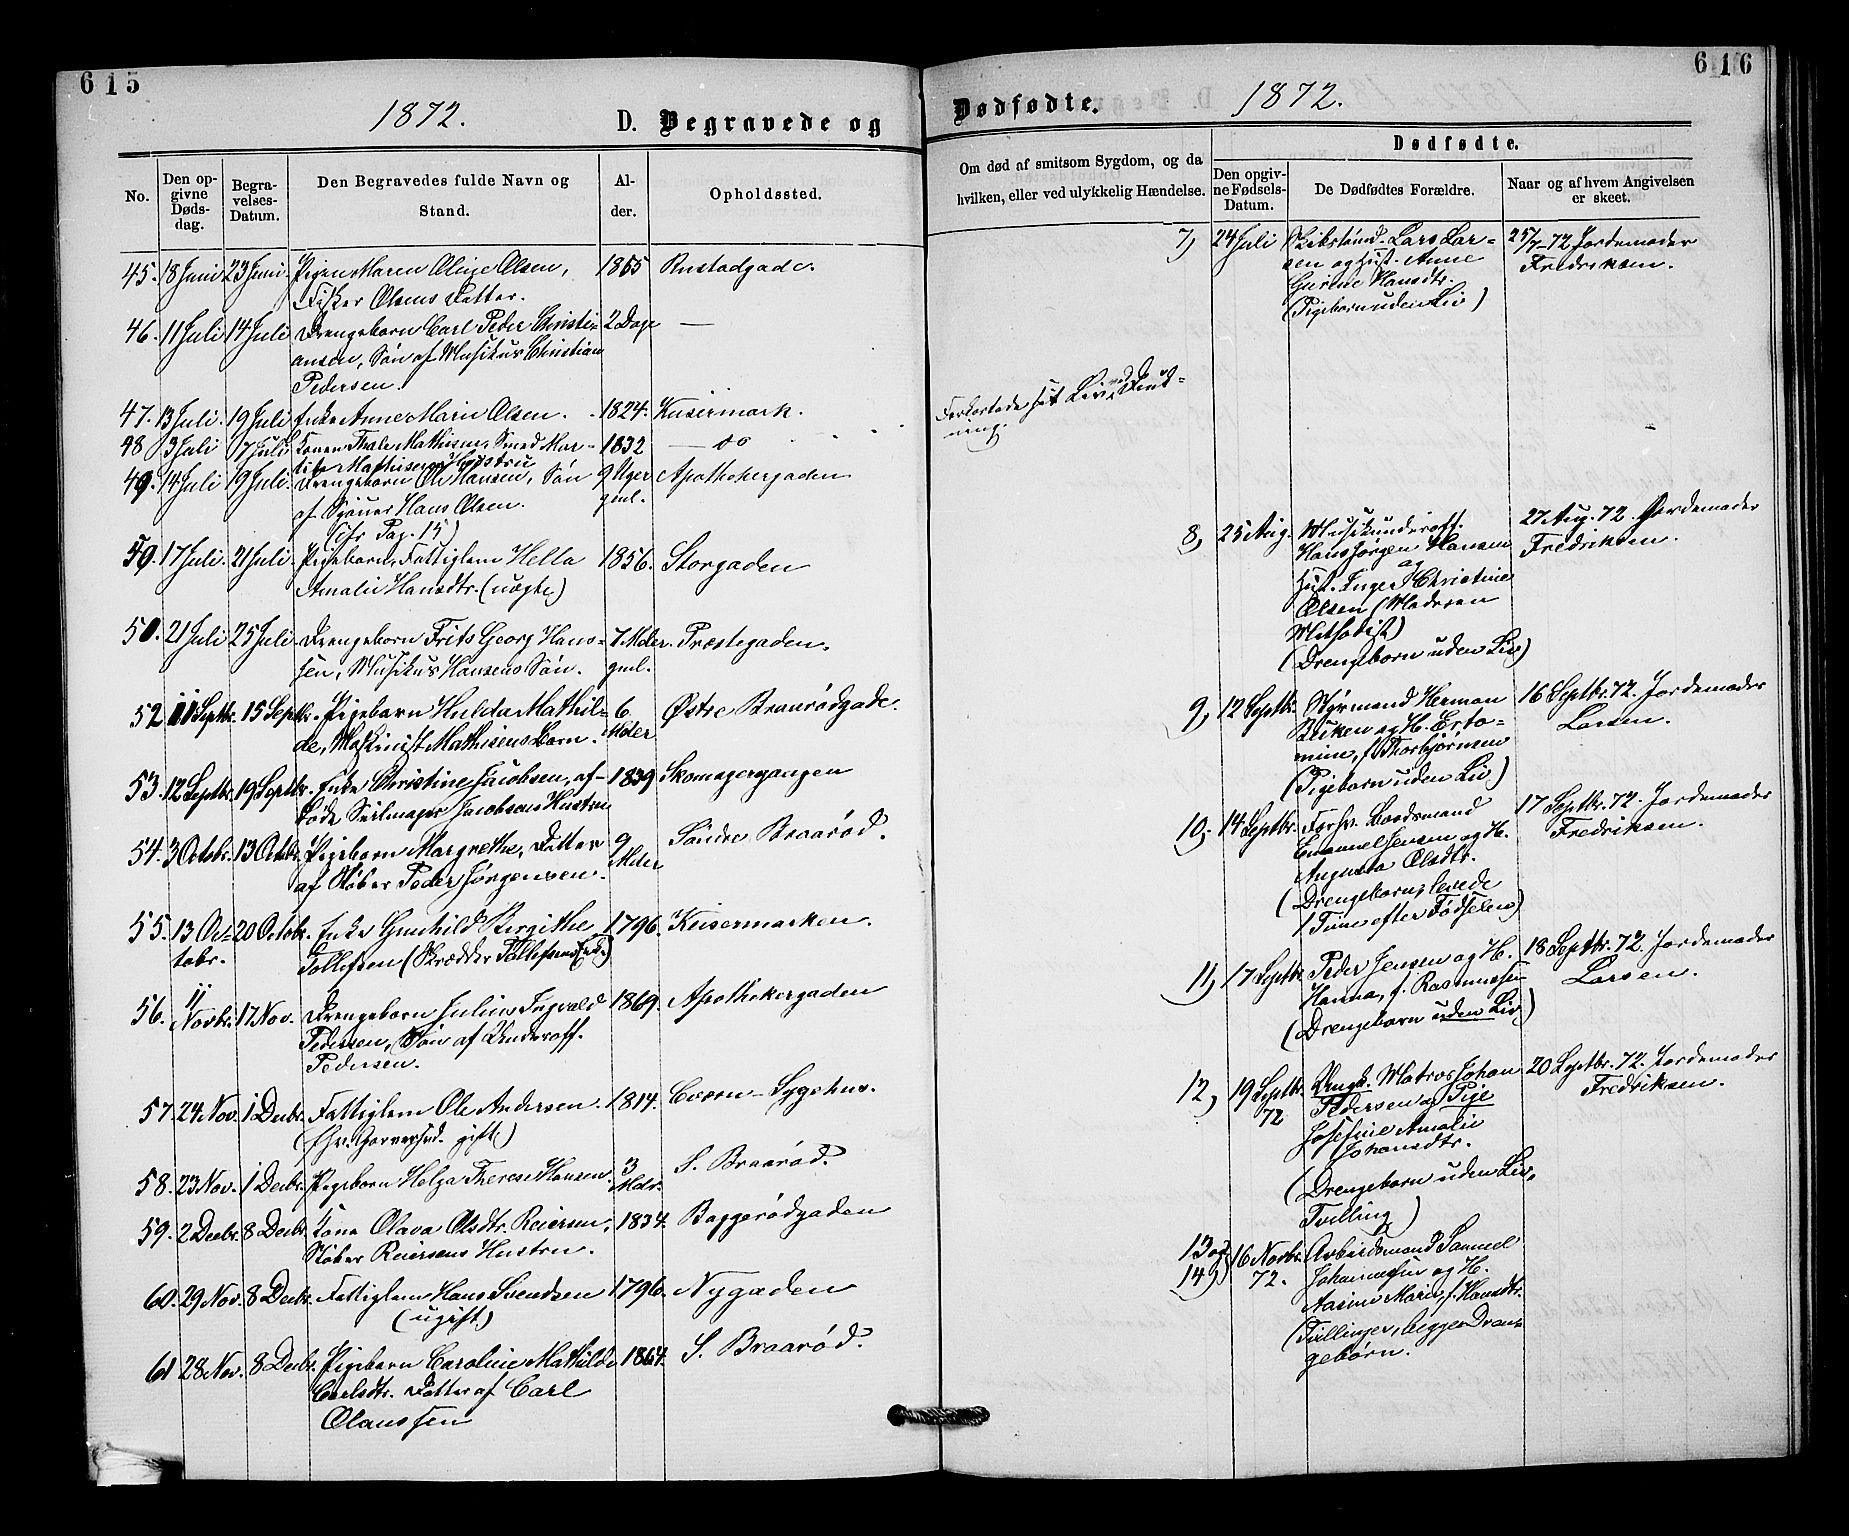 615
1872.
D. Begravede og
No.
Den opgivne Dødsdag.
Begravelses-Datum.
Den Begravedes fulde Navn og Stand.
Alder.
Opholdssted.
45. 18 Juni 23 Juni. Pigen Maren Oline Olsen, 1865 Rustadgade.
Fisker Olsens Datter.
46. 11 Juli 14 Juli Drengebarn Carl Peder Christi- 2 Dage —
ansen, Søn af Musikus Christian
Pedersen.
47. 13 Juli. 19 Juli Enke Anne Marie Olsen. 1824.
48 13 Juli 17 Juli Konen Thale Mathisen, Smed Mar- 1832 — do
Mathisens Hustru
49. 14 Juli 19 Juli. Drengebarn Ole Hansen, Søn 9 Uger Apothekergaden
af Hans Olsen. gml.
(cfr. Pag. 15)
17 Juli. 21 Juli. Pigebarn, Fattiglem Hella 1856. Storgaden
Amalie Hansdtr. (uægte)
50. 21 Juli 25 Juli Drengebarn Frits Georg Han- 7 Mder Præstegaden.
sen, Musikus Hansens Søn. gml.
52 11 Septbr. 15 Septbr. Pigebarn Hulda Mathil- 6 Østre Braarødgade.
de, Maskinist Mathisens Barn. Mder
53. 12 Septbr. 19 Septbr. Enke Christine Jacobsen, af- 1839 Skomagergangen
døde Seilmager Jacobsens Hustru
54. 3 Octobr. 13 Octobr. Pigebarn Margrethe, Datter 9 Søndre Braarød.
af Støber Peder Jørgensen. Mder
55. 13 Oc- 20 Octobr. Enke Gunhild Birgithe 1796. Keisermarken.
tobr. Tollefsen (Skrædder Tollefsens End.)
56. 11 Novbr. 17 Nov. Drengebarn Julius Ingvald 1869. Apothekergaden
Pedersen, Søn af Underoff.
Pedersen.
57. 24 Nov. 1 Decbr. Fattiglem Ole Andersen. 1814. Sygehus.
gift)
58. 23 Nov. 1 Decbr. Pigebarn Helga Therese Hansen. 3 S. Braarød.
Mdr.
59. 2 Decbr. 8 Decbr. Kone Olava Olsdtr. Reiersen, 1834. Baggerødgaden
Støber Reiersens Hustru.
60. 29 Nov. 8 Decbr. Fattiglem Hans Svendsen 1796. Nygaden
(ugift)
61 28 Nov. 8 Decbr. Pigebarn Caroline Mathilde 1864. S. Braarød.
Carlsdtr. Datter af Carl
Olaussen
616
Dødfødte.
1872.
Om død af smitsom Sygdom, og da hvilken, eller ved ulykkelig Hændelse.
Dødfødte.
Den opgivne Fødsels-Datum.
De Dødfødtes Forældre.
Naar og af hvem Angivelsen er skeet.
Forkortede sit Liv ved Drukning.
7, 24 Juli Lars Lar- 25/7-72 Jordemoder
sen og Hust. Anne Fredriksen.
Gurine Hansdtr.
(Pigebarn uden Liv)
8, 25 Aug. Musikunderoff. 27 Aug. 72. Jordemoder
Hans Jørgen Hansen Fredriksen.
og
Hust. Inger Christine
Olsen (Moderen
Methodist)
(Drengebarn uden Liv)
9, 12 Septbr. Styrmand Herman 16 Septbr. 72. Jordemoder
og H. Larsen.
mine, f. Thorbjørnsen
(Pigebarn uden Liv.)
10, 14 Septbr. Forhv. Baadsmand 17 Septbr. 72. Jordemoder
Emanuel Jensen og H. Fredriksen.
Augusta Olsdtr.
(Drengebarn, levede
1 Time efter Fødselen)
11, 17 Septbr. Peder Jensen og H. 18 Septbr. 72. Jordemoder
Hanna, f. Rasmussen Larsen.
(Drengebarn uden Liv)
12, 19 Septbr. Ungk. Matros Johan 20 Septbr. 72. Jordemoder
72 Pedersen og Pige Fredriksen.
Josefine Amalie
Johansdtr.
(Drengebarn uden Liv,
Tvilling)
13 og 16 Novbr. Arbeidsmand Samuel
14, 72. Johannesen og H.
Aasine Marie, f. Hansdtr.
(Tvillinger, begge Dren-
gebørn.